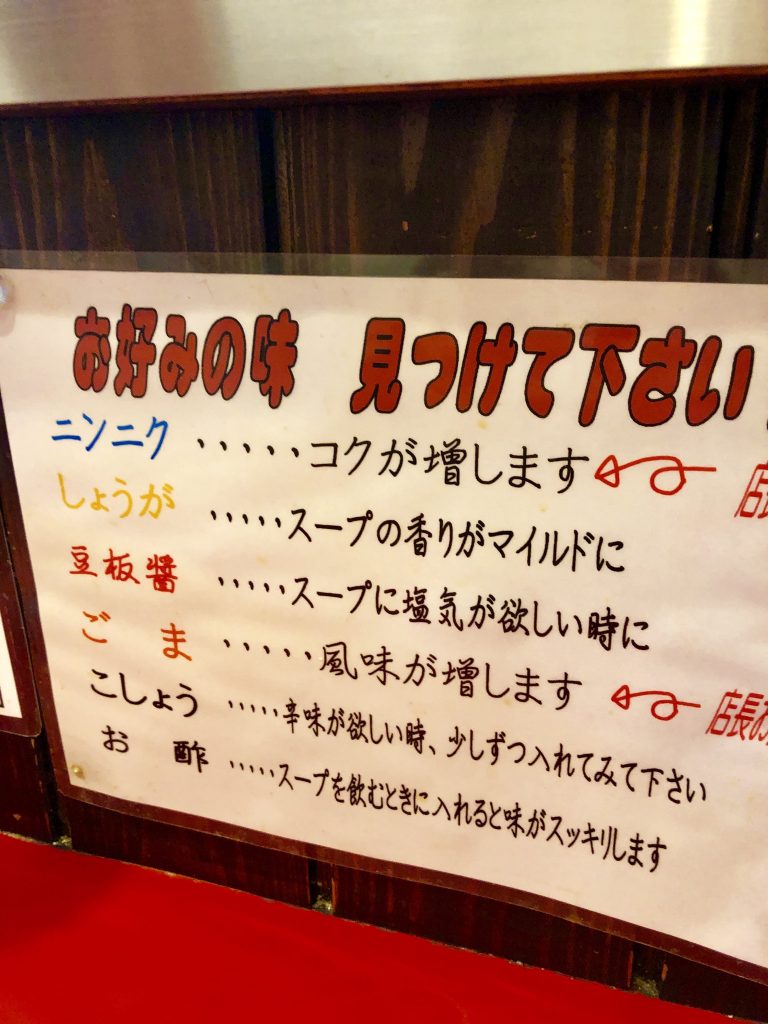 お好みの味 見つけて下さい
ニンニク ・・・・・コクが増します 店
しょうが ・・・・・スープの香りがマイルドに
豆板醤 ・・・・・スープに塩気が欲しい時に
ごま ・・・・・風味が増します 店長お
こしょう ・・・・・辛味が欲しい時、少しずつ入れてみて下さい
お酢 ・・・・・スープを飲むときに入れると味がスッキリします